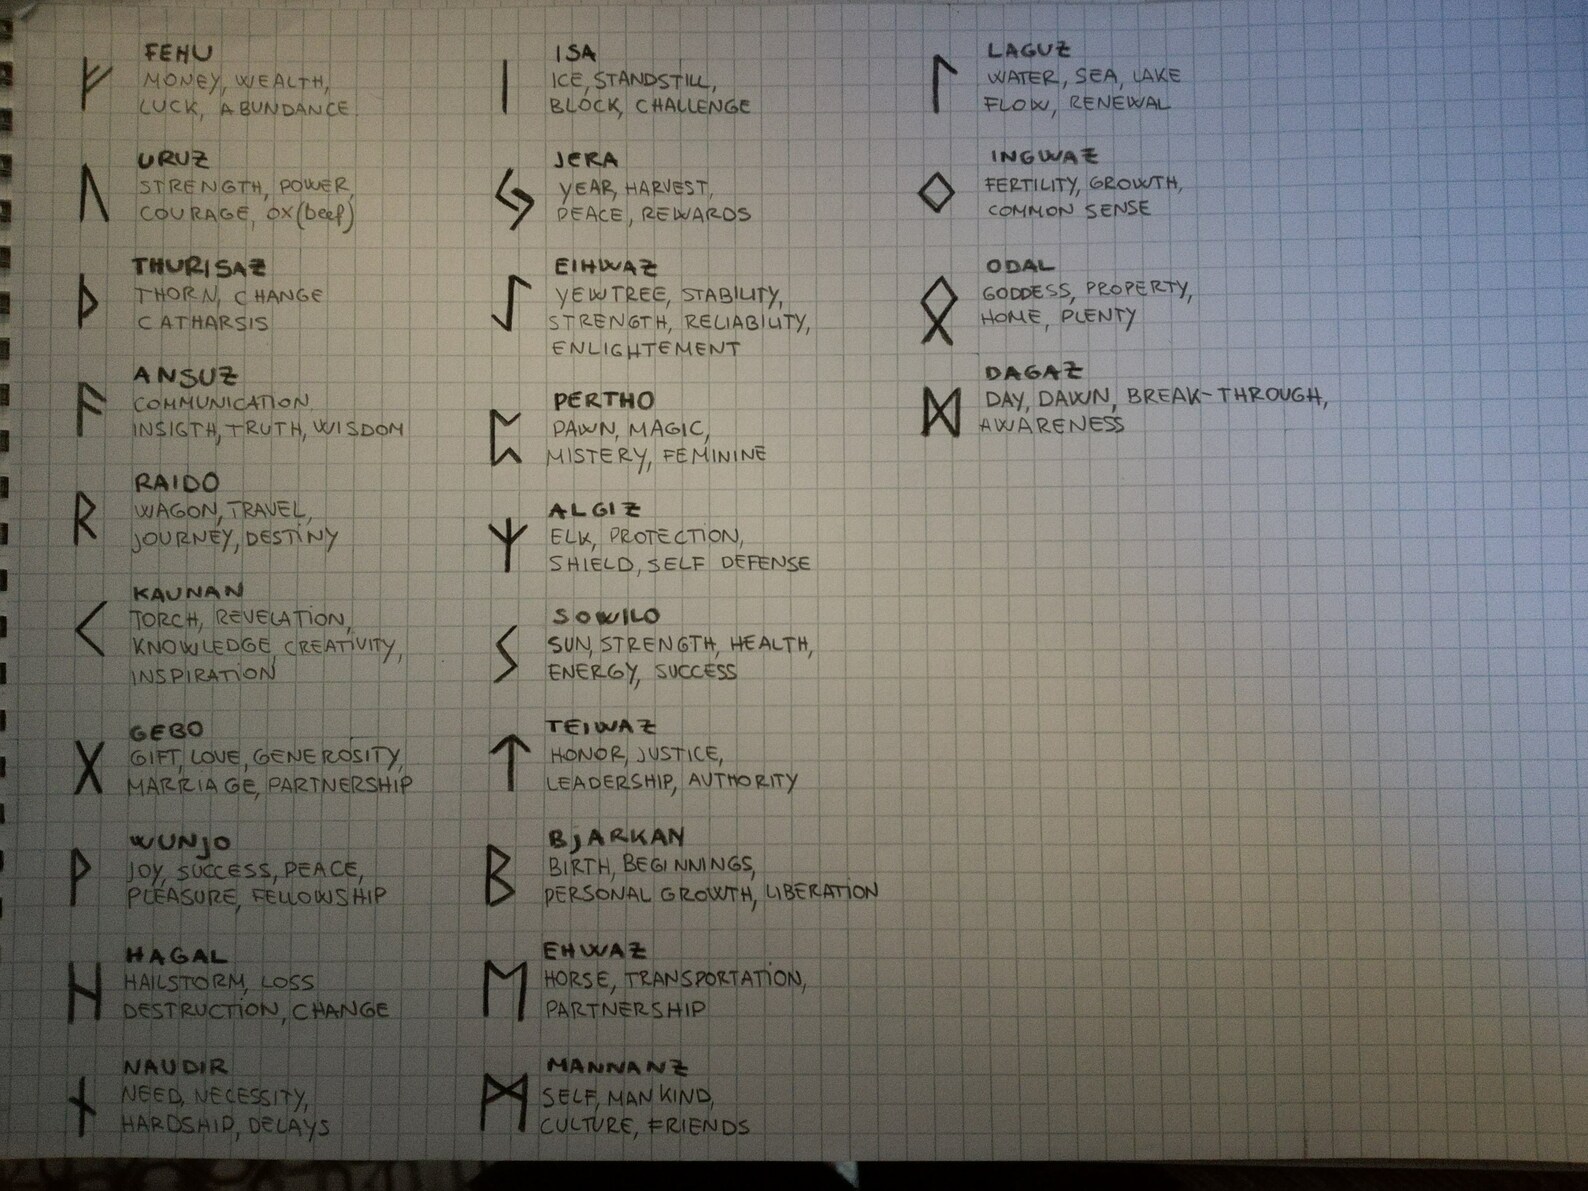 ᚠ FEHU
MONEY, WEALTH,
LUCK, ABUNDANCE
ᚢ URUZ
STRENGTH, POWER,
COURAGE, OX(beef)
ᚦ THURISAZ
THORN, CHANGE
CATHARSIS
ᚨ ANSUZ
COMMUNICATION,
INSIGTH, TRUTH, WISDOM
ᚱ RAIDO
WAGON, TRAVEL,
JOURNEY, DESTINY
ᚲ KAUNAN
TORCH, REVELATION,
KNOWLEDGE, CREATIVITY,
INSPIRATION
ᚷ GEBO
GIFT, LOVE, GENEROSITY,
MARRIAGE, PARTNERSHIP
ᚹ WUNJO
JOY, SUCCESS, PEACE,
PLEASURE, FELLOWSHIP
ᚺ HAGAL
HAILSTORM, LOSS
DESTRUCTION, CHANGE
ᚾ NAUDIR
NEED, NECESSITY,
HARDSHIP, DELAYS
ᛁ ISA
ICE, STANDSTILL,
BLOCK, CHALLENGE
ᛃ JERA
YEAR, HARVEST,
PEACE, REWARDS
ᛇ EIHWAZ
YEWTREE, STABILITY,
STRENGTH, RELIABILITY,
ENLIGHTEMENT
ᛈ PERTHO
DAWN, MAGIC,
MISTERY, FEMININE
ᛉ ALGIZ
ELK, PROTECTION,
SHIELD, SELF DEFENSE
ᛊ SOWILO
SUN, STRENGTH, HEALTH,
ENERGY, SUCCESS
ᛏ TEIWAZ
HONOR, JUSTICE,
LEADERSHIP, AUTHORITY
ᛒ BJARKAN
BIRTH, BEGINNINGS,
PERSONAL GROWTH, LIBERATION
ᛖ EHWAZ
HORSE, TRANSPORTATION,
PARTNERSHIP
ᛗ MANNANZ
SELF, MANKIND,
CULTURE, FRIENDS
ᛚ LAGUZ
WATER, SEA, LAKE
FLOW, RENEWAL
ᛜ INGWAZ
FERTILITY, GROWTH,
COMMON SENSE
ᛟ ODAL
GODDESS, PROPERTY,
HOME, PLENTY
ᛞ DAGAZ
DAY, DAWN, BREAK-THROUGH,
AWARENESS